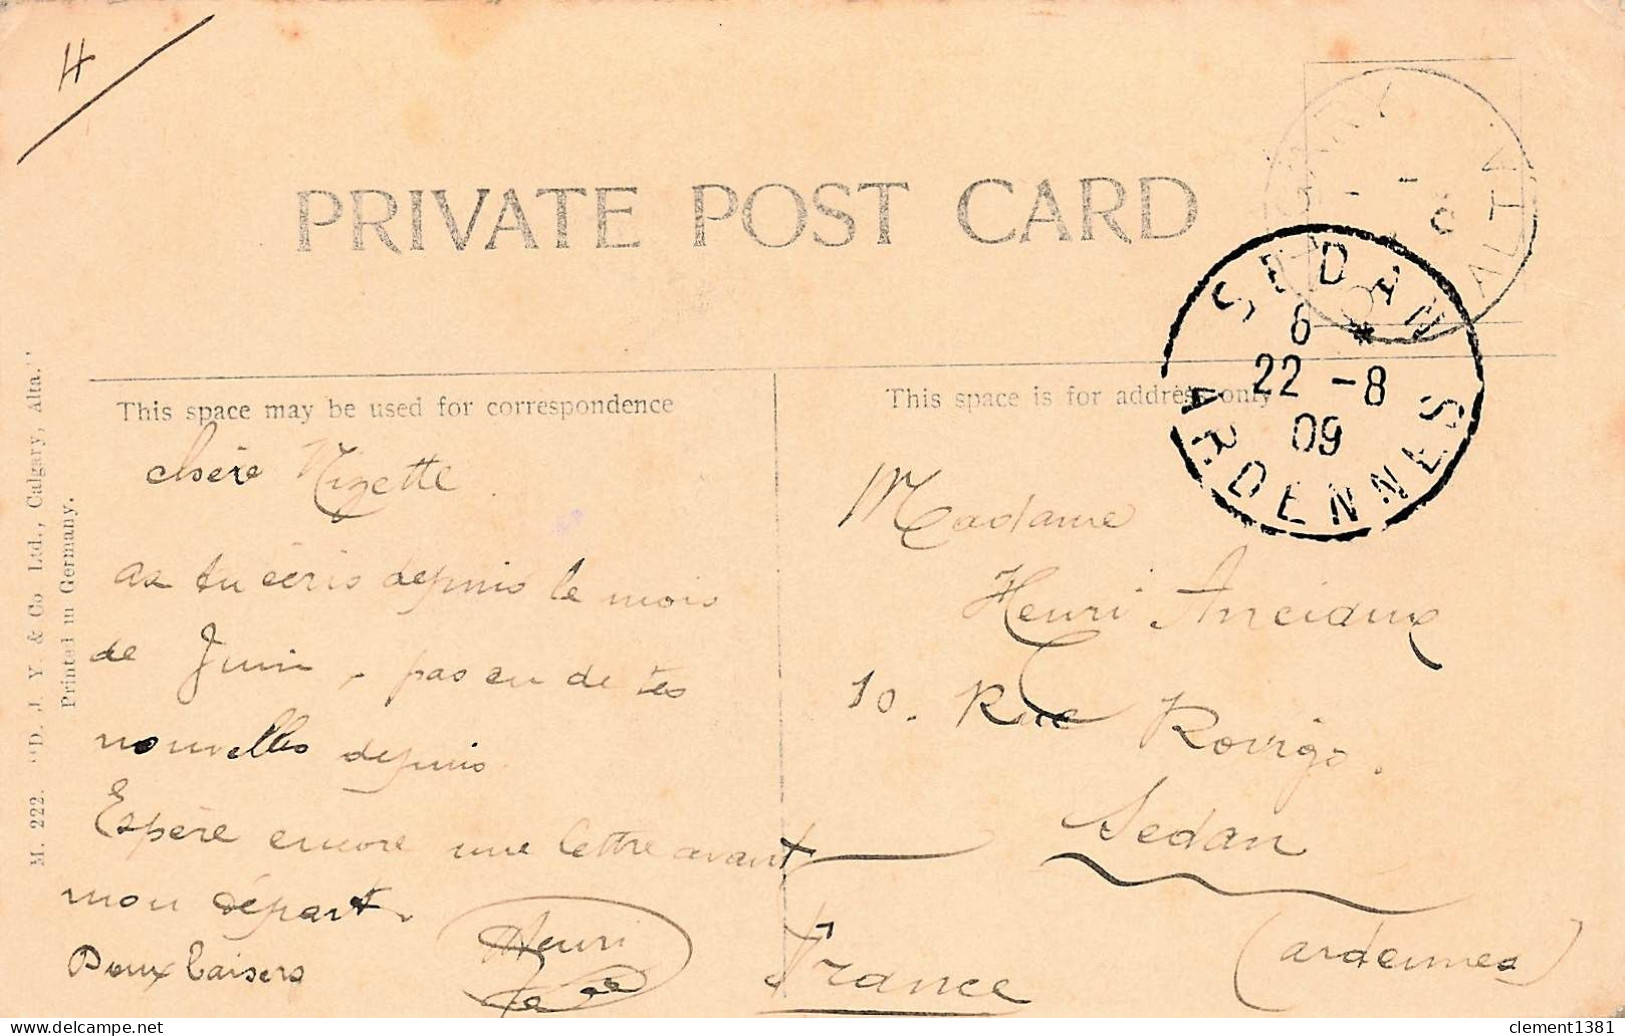 H
PRIVATE POST CARD
CALGARY
ALTA
SEDAN
6 *
22 -8
09
ARDENNES
This space may be used for correspondence
This space is for address only
M. 222. "D. J. Y & Co Ltd., Calgary, Alta."
Printed in Germany.
chère Nizette.
as tu écris depuis le mois
de Juin, pas eu de tes
nouvelles depuis
Espère encore une lettre avant
mon départ.
Doux baisers
Henri
Madame
Henri Anciaux
10. Rue Rovigo.
Sedan
(ardennes)
France
clement1381